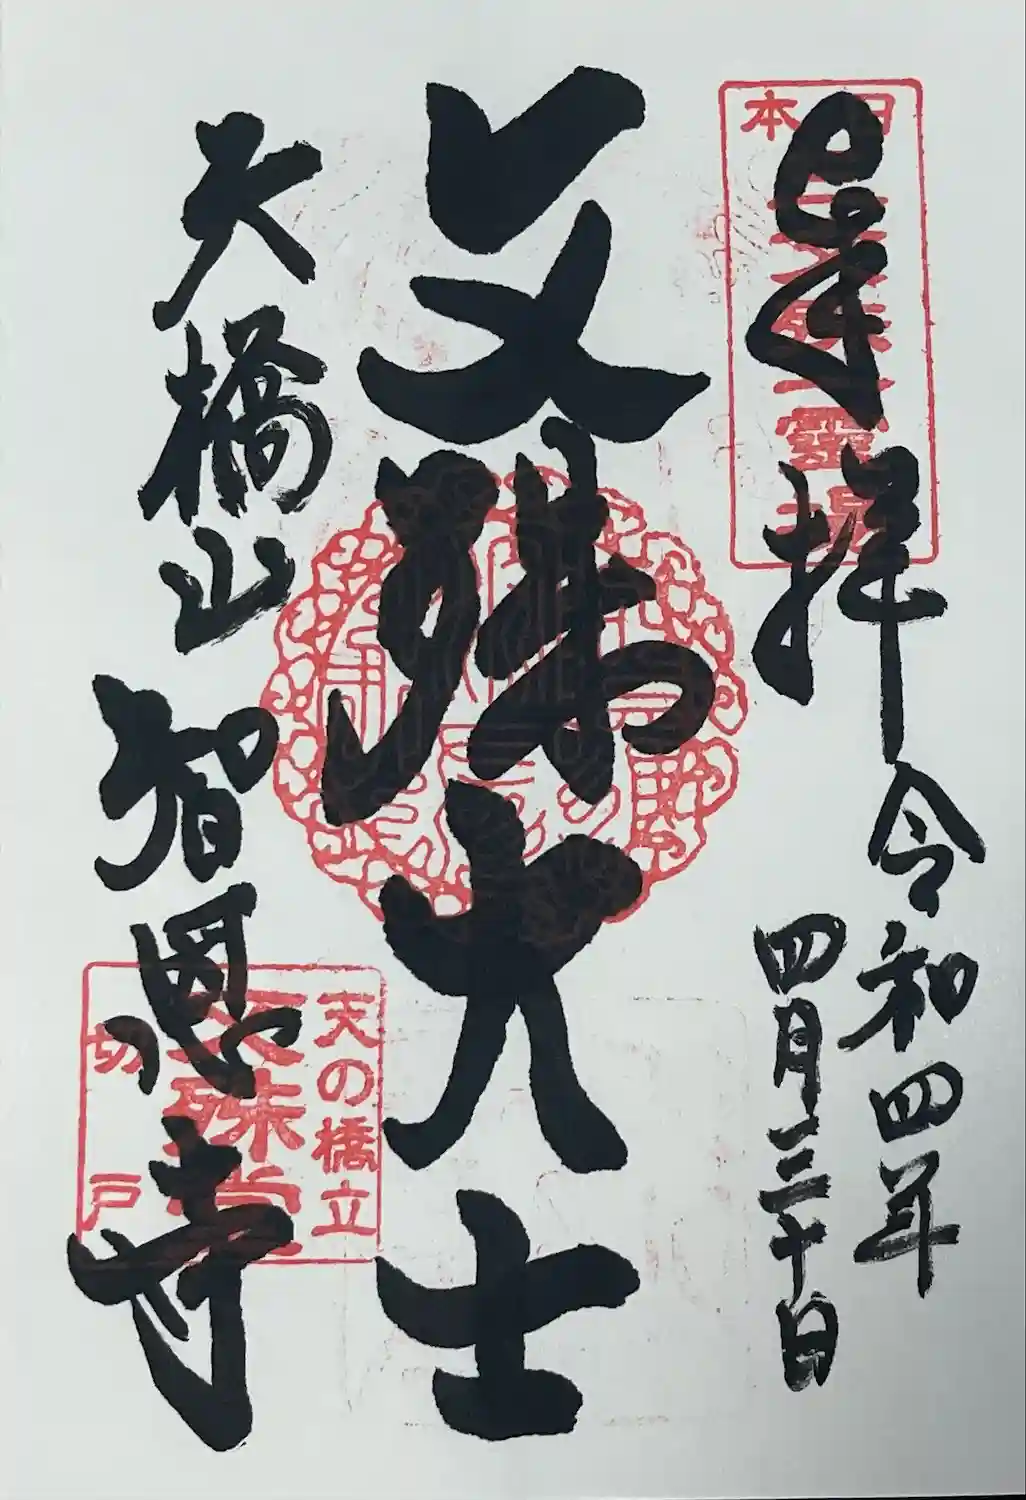 奉拝
令和四年
四月三十日
日本三文殊第一霊場
文殊大士
天橋山
智恩寺
天の橋立
文殊堂
切戸